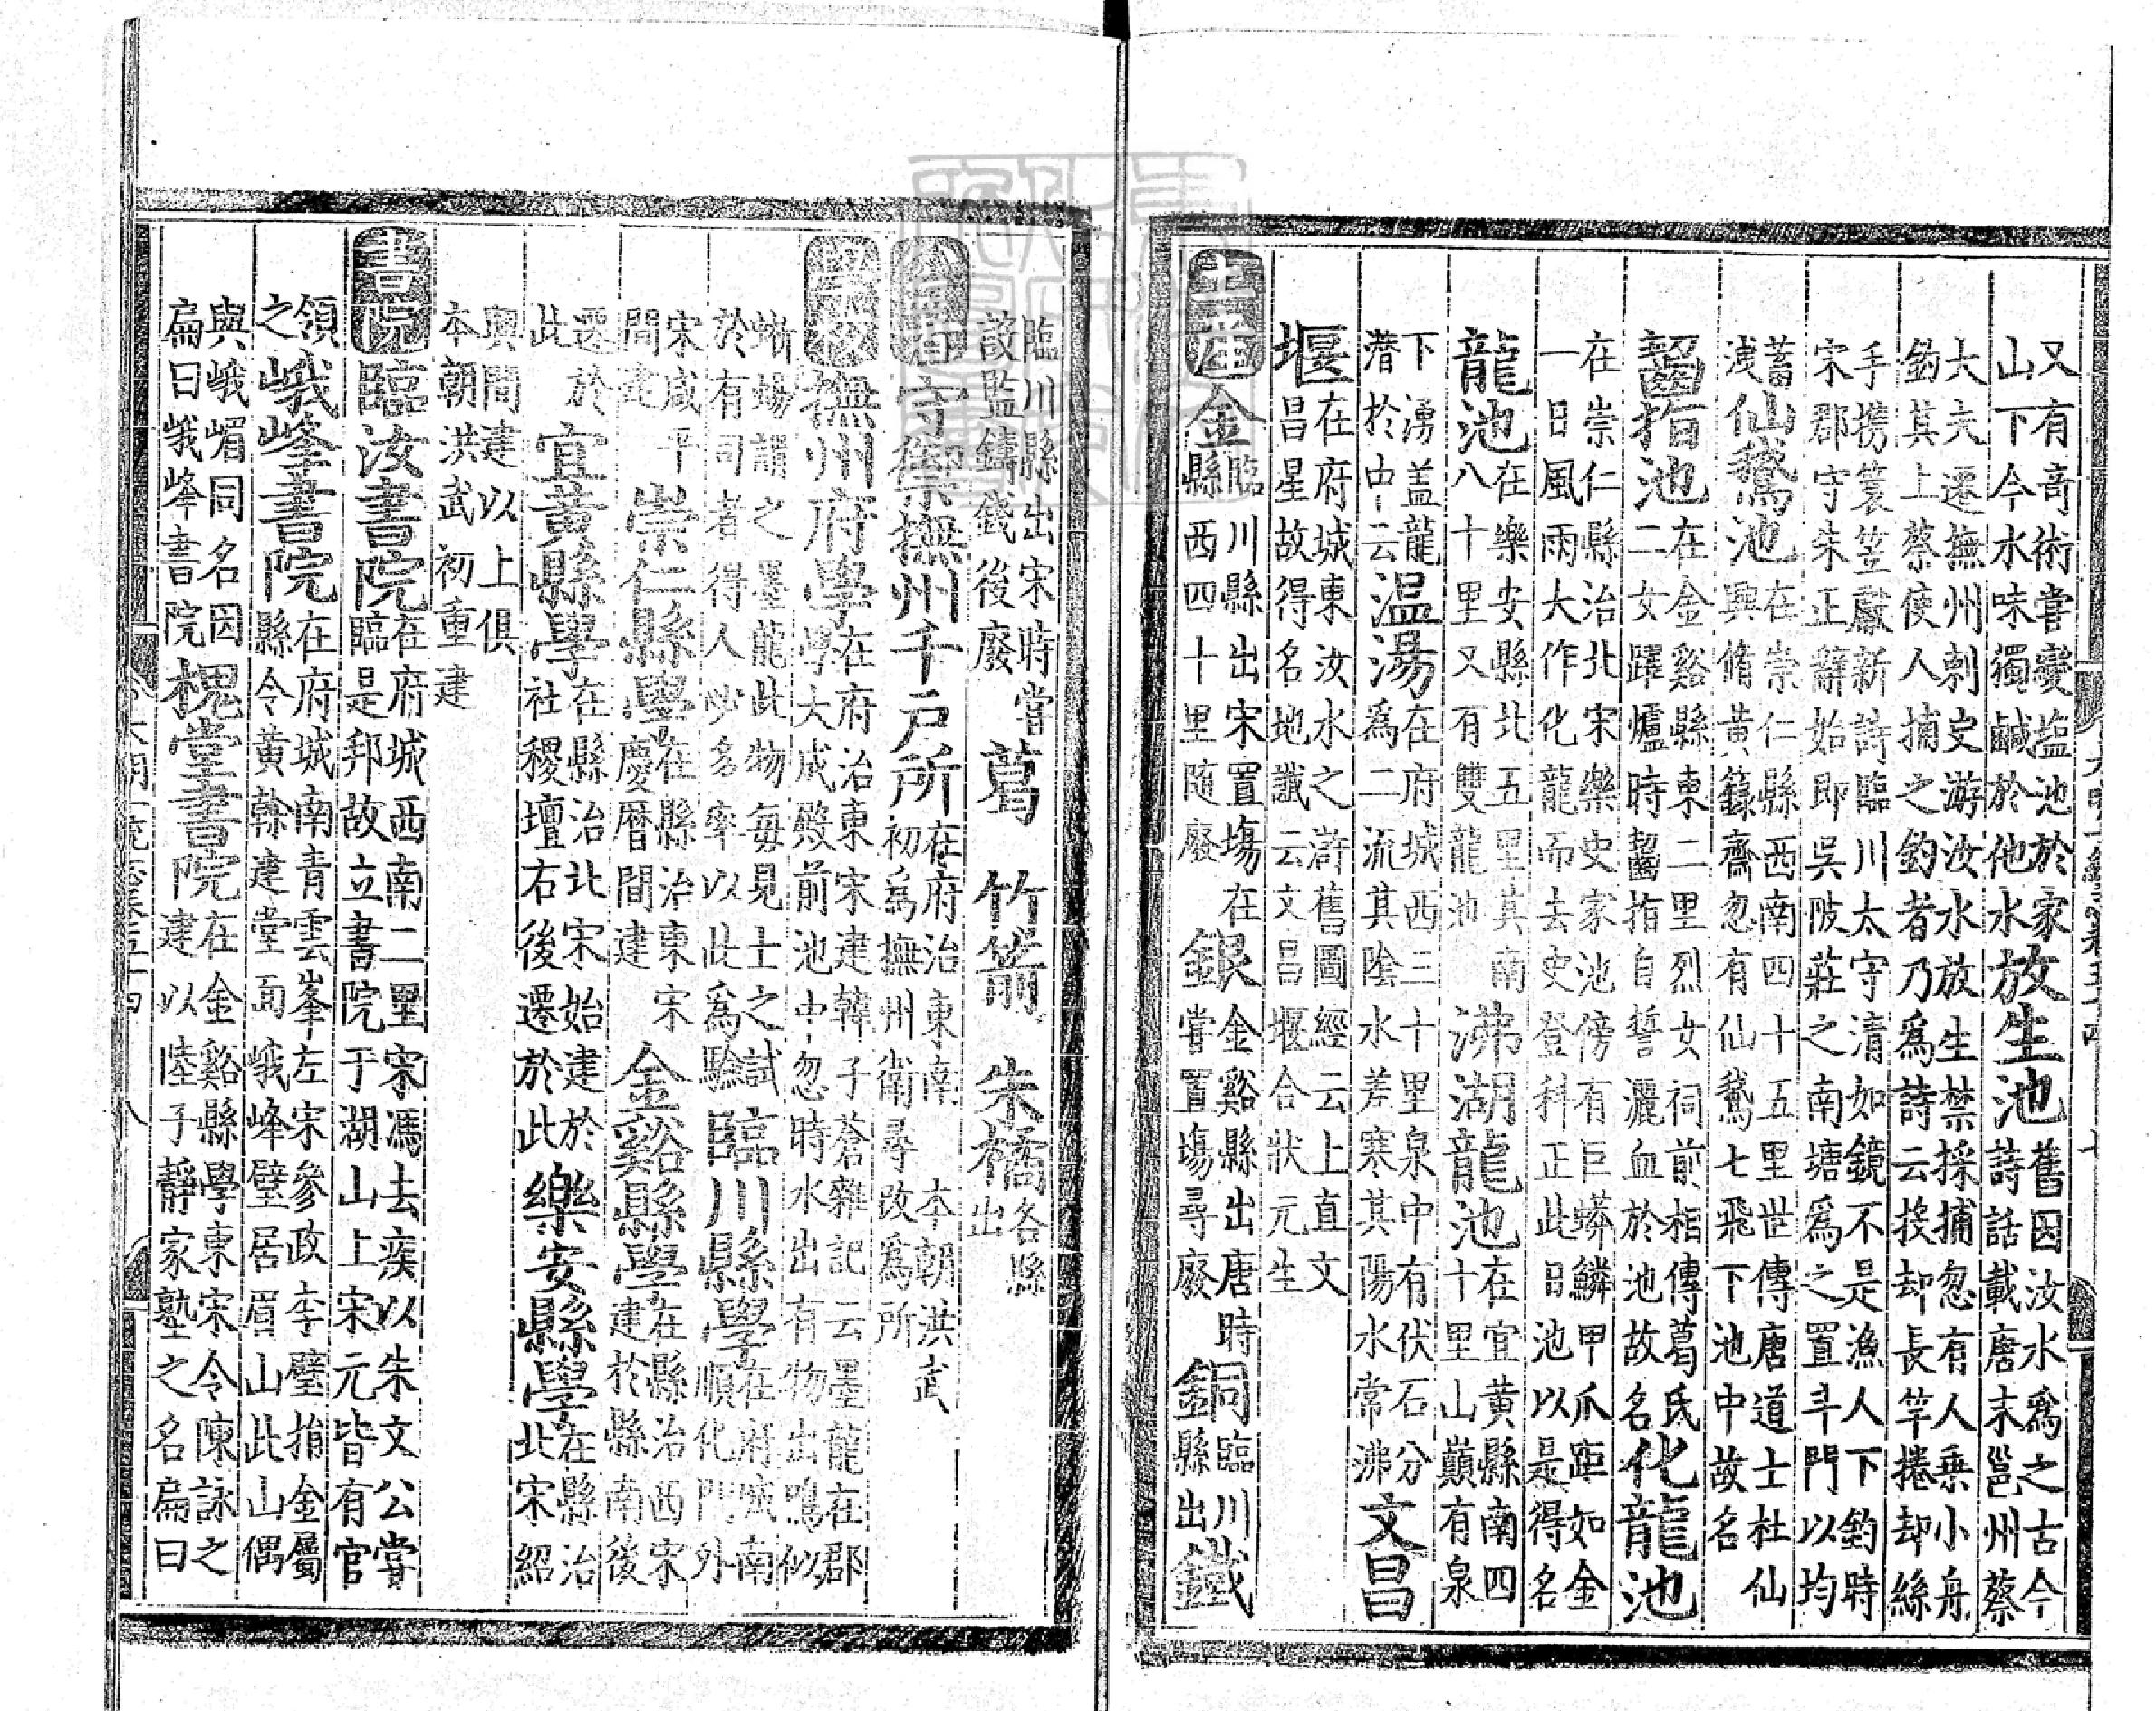 又有奇術嘗變塩池於家山下今水味獨鹹於他水放生池舊因汝水為之古今詩話載唐末邕州蔡
大夫遷撫州刺史游汝水放生禁採捕忽有人乗小舟釣其上蔡使人捕之釣者乃為詩云投却長竿捲却絲
手携蓑笠獻新詩臨川太守清如鏡不是漁人下釣時宋郡守朱正辭始即吳陂莊之南塘為之置斗門以均
蓄洩仙鵞池在崇仁縣西南四十五里世傳唐道士杜仙興脩黃籙齋忽有仙鵞七飛下池中故名
齧指池在金谿縣東二里烈女祠前相傳葛氏二女躍爐時齧指自誓灑血於池故名化龍池
在崇仁縣治北宋樂史家池傍有巨蠎鱗甲爪距如金一日風雨大作化龍而去史登科正此日池以是得名
龍池在樂安縣北五里其南八十里又有雙龍池沸湖龍池在宜黃縣南四十里山巔有泉
下湧盖龍潛於中云温湯在府城西三十里泉中有伏石分為二流其陰水差寒其陽水常沸文昌
堰在府城東汝水之滸舊圖經云上直文昌星故得名地讖云文昌堰合狀元生
土産金臨川縣出宋置塲在縣西四十里随廢銀金谿縣出唐時嘗置塲尋廢銅臨川縣出鐵
臨川縣出宋時嘗設監鑄錢後廢葛竹箭朱橘各縣出
公署守禦撫州千戶所在府治東南本朝洪武初為撫州衛尋改為所
學校撫州府學在府治東宋建韓子蒼雜記云墨龍在郡學大成殿前池中忽時水出有物出鳴似
蜥蜴謂之墨龍此物毎見士之試於有司者得人必多率以此為驗臨川縣學在府城南順化門外
宋咸平間建崇仁縣學在縣治東宋慶曆間建金谿縣學在縣治西宋建於縣南後
遷於此宜黃縣學在縣治北宋始建於社稷壇右後遷於此樂安縣學在縣治北宋紹
興間建以上俱本朝洪武初重建
書院臨汝書院在府城西南二里宋馮去疾以朱文公嘗臨是邦故立書院于湖山上宋元皆有官
領之峨峰書院在府城南青雲峯左宋參政李壁捐金屬縣令黃榦建堂面峨峰壁居眉山此山偶
與峨嵋同名因扁曰峨峰書院槐堂書院在金谿縣學東宋令陳詠之建以陸子靜家塾之名扁曰
大明一統志卷五十四 八